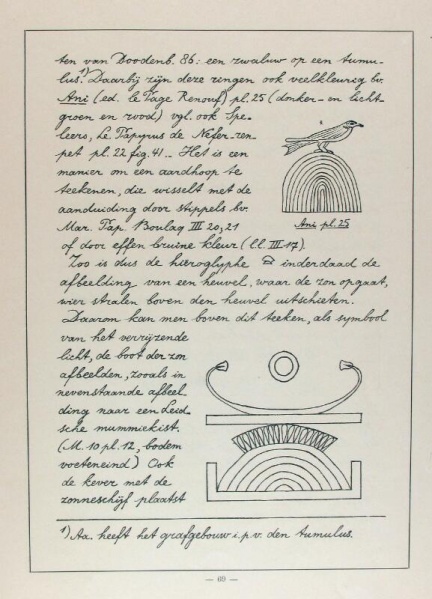 ten van Doodenb. 86: een zwaluw op een tumu-
lus.¹) Daarbij zijn deze ringen ook veelkleurig bv.
Ani (ed. le Page Renouf) pl. 25 (donker- en licht-
groen en rood) vgl. ook Spe-
leers, Le Papyrus de Nefer-ren-
pet pl. 22 fig. 41.. Het is een
manier om een aardhoop te
teekenen, die wisselt met de
aanduiding door stippels bv.
Mar. Pap. Boulaq III 20, 21
of door effen bruine kleur (ll. III 17).
Ani, pl. 25
Zoo is dus de hieroglyphe inderdaad de
afbeelding van een heuvel, waar de zon opgaat,
wier stralen boven den heuvel uitschieten.
Daarom kan men boven dit teeken, als symbool
van het verrijzende
licht, de boot der zon
afbeelden, zooals in
nevenstaande afbeel-
ding naar een Leid-
sche mummiekist.
(M. 10 pl. 12, bodem
voeteneind) Ook
de kever met de
zonneschijf plaatst
¹) Aa. heeft het grafgebouw i.p.v. den tumulus.
— 69 —